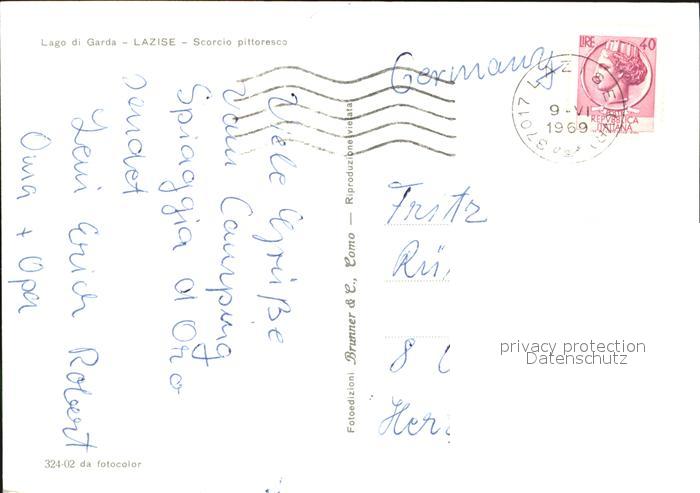 Lago di Garda – LAZISE – Scorcio pittoresco
Viele Grüße
vom Camping
Spiaggia d'Oro
sendet
Erich Robert
Oma + Opa
324-02 da fotocolor
Fotoedizioni Brunner & C., Como — Riproduzione vietata
Germany
LIRE 40
REPUBBLICA
ITALIANA
37017 LAZ
9-VI
1969
Fritz
Rü
8
Her
privacy protection
Datenschutz